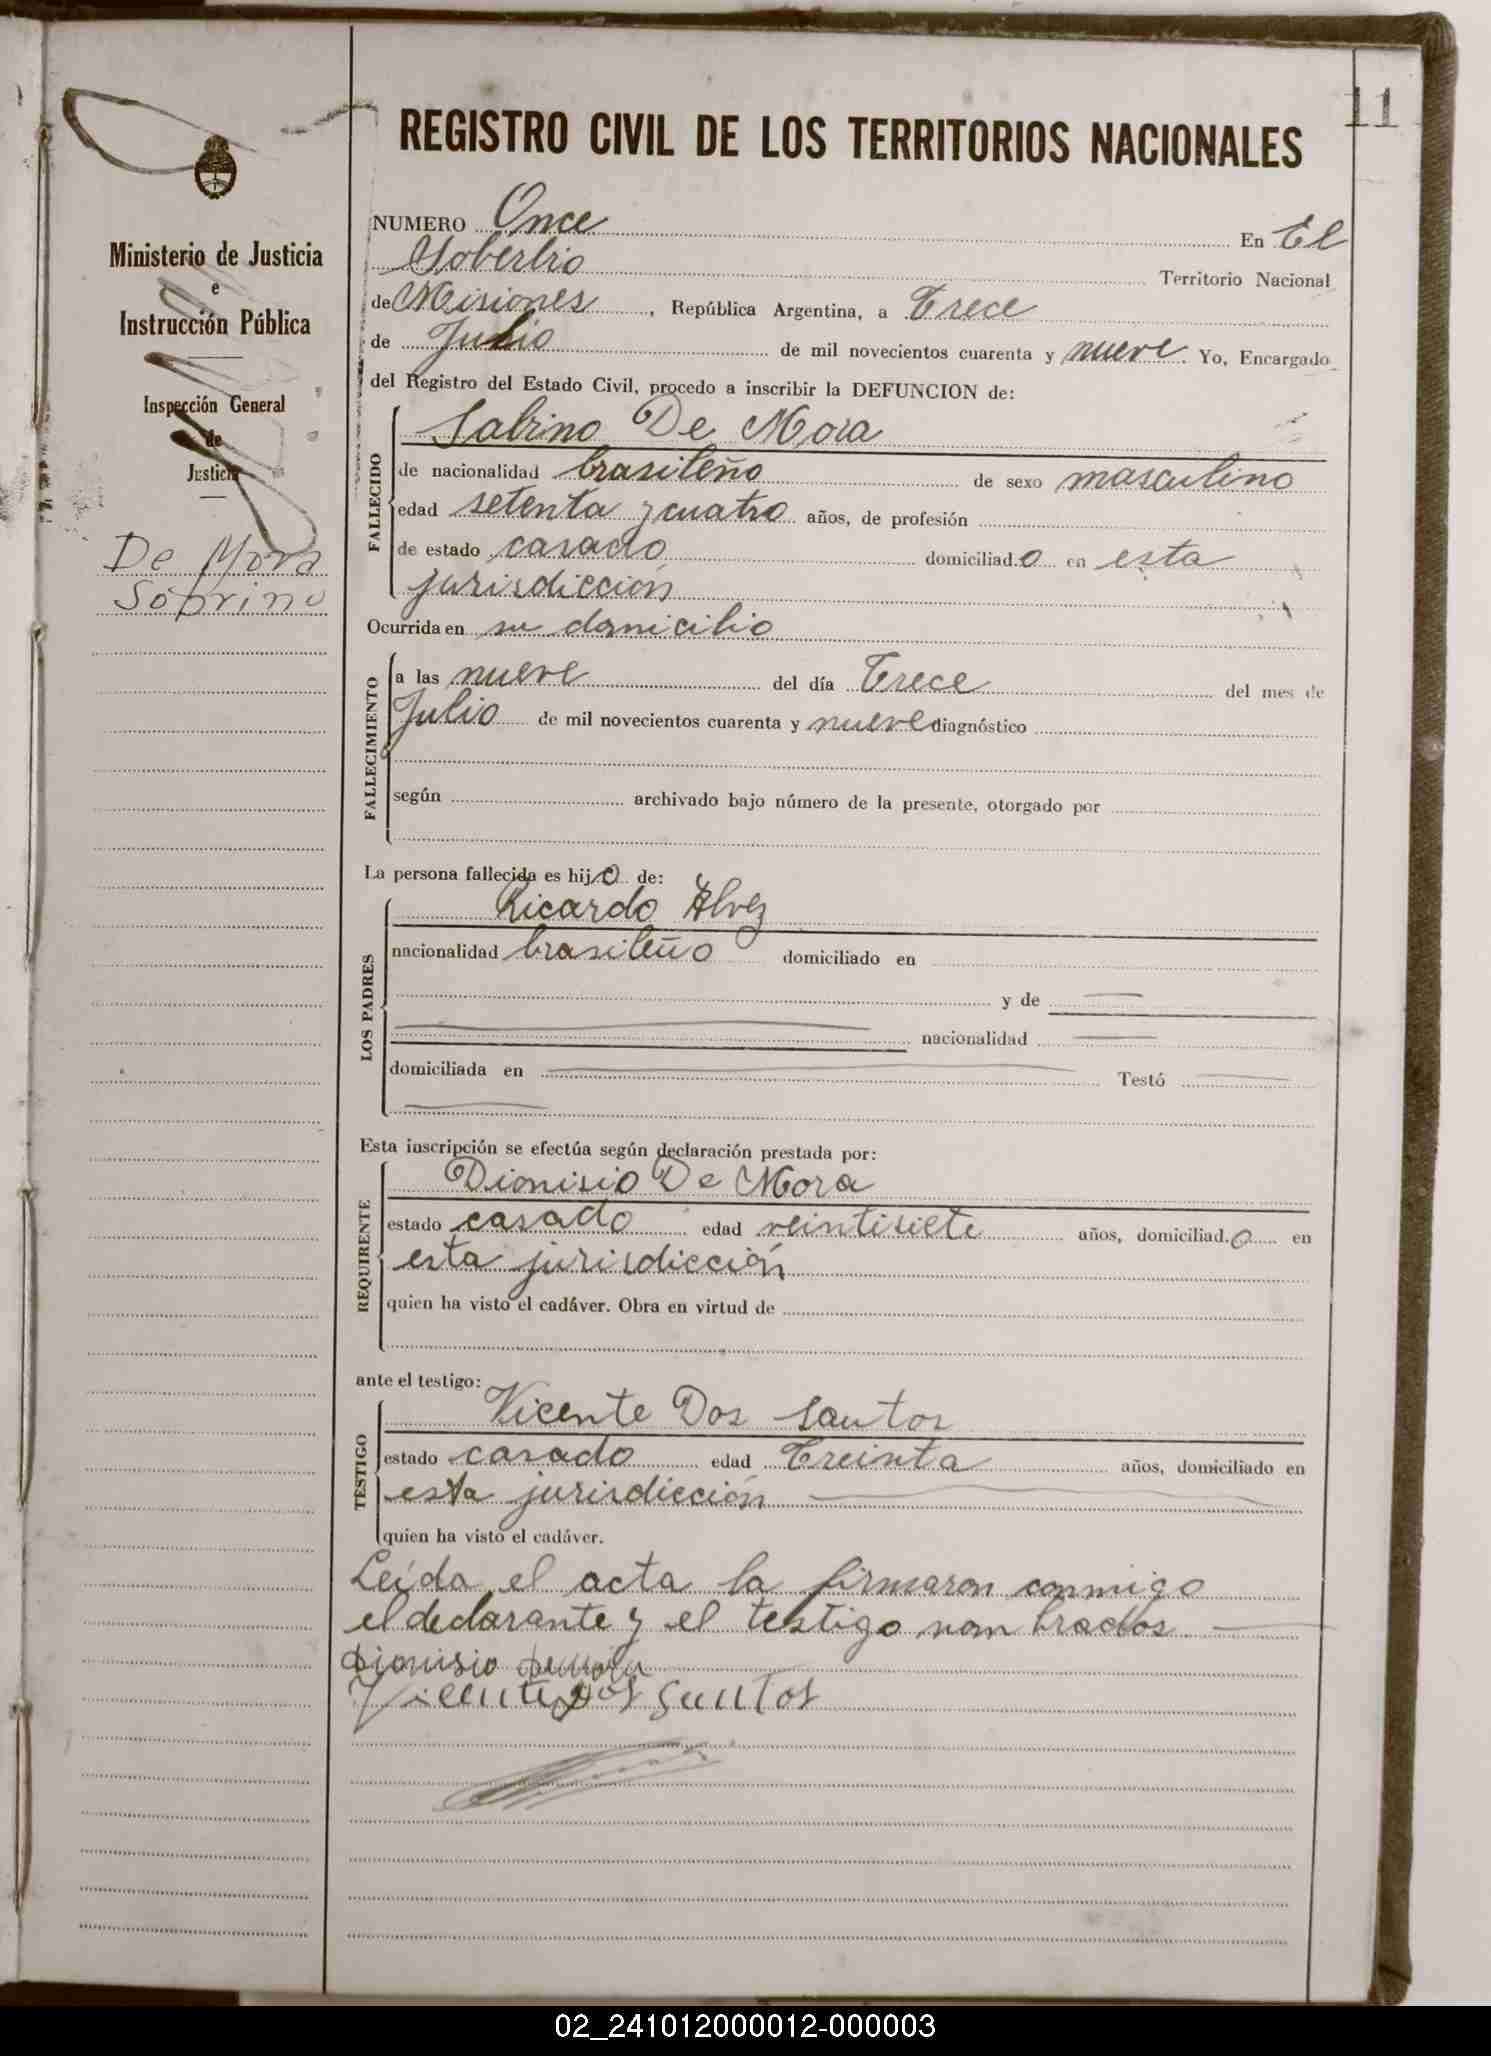 11
REGISTRO CIVIL DE LOS TERRITORIOS NACIONALES
Ministerio de Justicia
e
Instrucción Pública
Inspección General
de
Justicia
De Mora
Sobrino
NUMERO Once En El
Soberbio Territorio Nacional
de Misiones, República Argentina, a Trece
de Julio de mil novecientos cuarenta y nueve. Yo, Encargado
del Registro del Estado Civil, procedo a inscribir la DEFUNCION de:
FALLECIDO
Sabino De Mora
de nacionalidad brasileño de sexo masculino
edad setenta y cuatro años, de profesión
de estado casado domiciliado en esta
jurisdicción
Ocurrida en su domicilio
FALLECIMIENTO
a las nueve del día Trece del mes de
Julio de mil novecientos cuarenta y nueve diagnóstico
según archivado bajo número de la presente, otorgado por
La persona fallecida es hijo de:
LOS PADRES
Ricardo Alvez
nacionalidad brasileño domiciliado en
y de
nacionalidad
domiciliada en Testó
Esta inscripción se efectúa según declaración prestada por:
REQUIRENTE
Dionisio De Mora
estado casado edad veintisiete años, domiciliado en
esta jurisdicción
quien ha visto el cadáver. Obra en virtud de
ante el testigo:
TESTIGO
Vicente Dos Santos
estado casado edad Treinta años, domiciliado en
esta jurisdicción
quien ha visto el cadáver.
Leída el acta la firmaron conmigo
el declarante y el testigo nombrados
dionisio demora
Vicente dos Santos
02_241012000012-000003